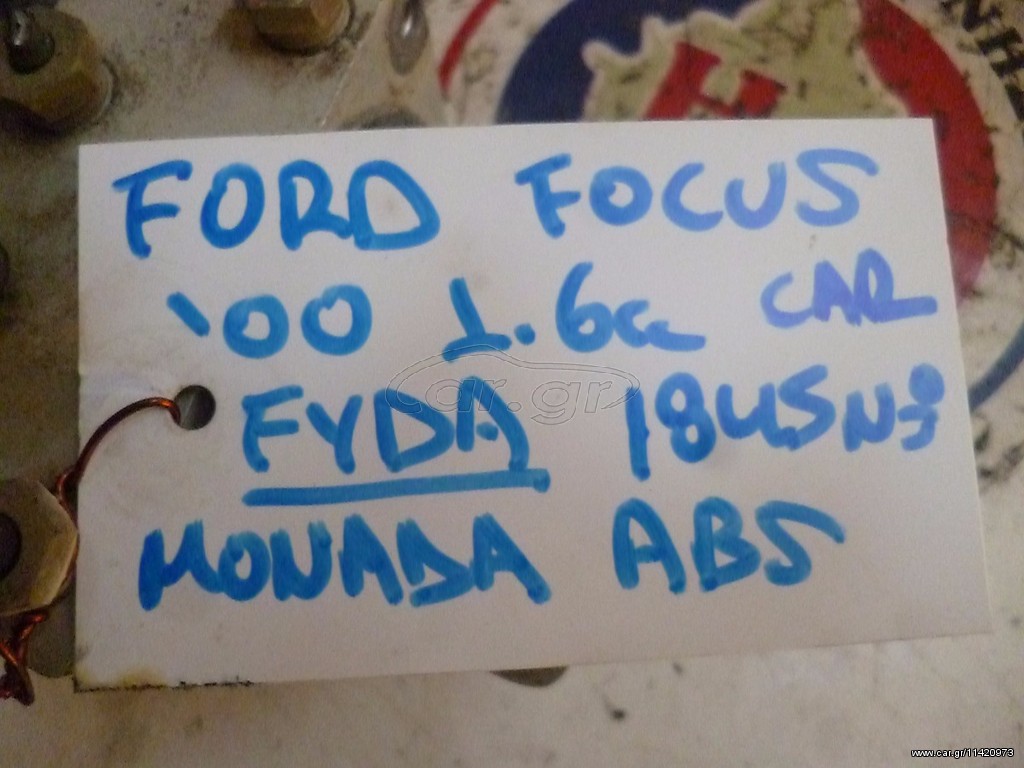 FORD FOCUS
'00 1.6cc CAR
FYDA
ΜΟΝΑΔΑ ABS
car.gr
www.car.gr/11420973